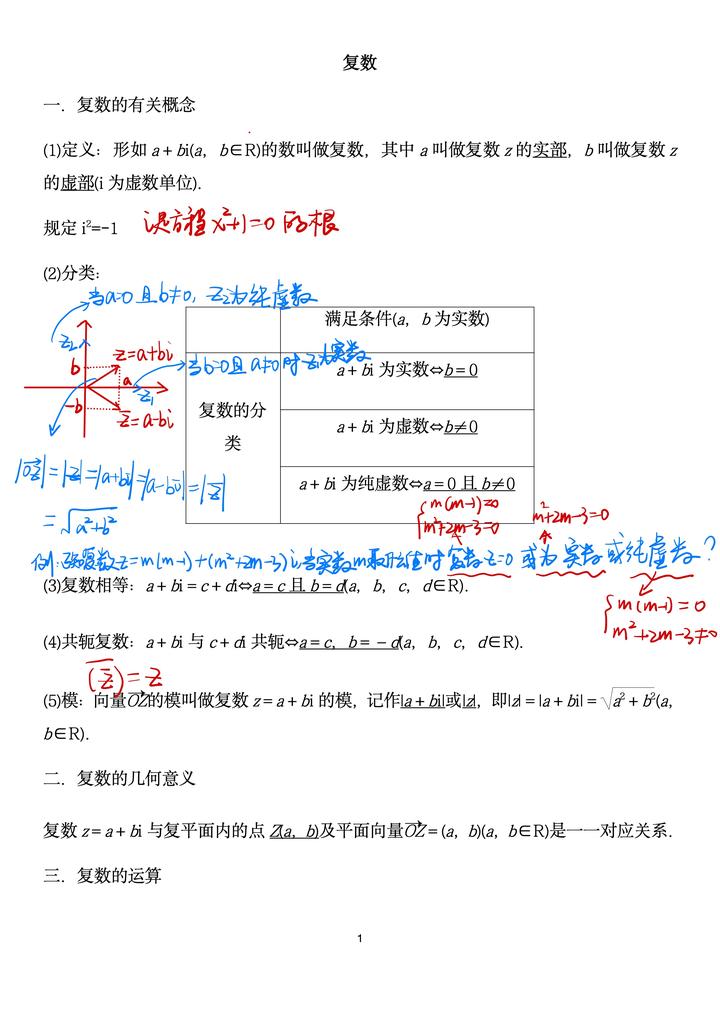 复数
一．复数的有关概念
(1)定义：形如 a＋bi(a，b∈R)的数叫做复数，其中 a 叫做复数 z 的实部，b 叫做复数 z
的虚部(i 为虚数单位)．
规定 i²=-1 是方程 x²+1=0 的根
(2)分类：
当a=0 且 b≠0，z₂为纯虚数
满足条件(a，b 为实数)
z₂
b
z=a+bi
a
z₁
-b
z̅=a-bi
当b=0且 a≠0时 z₁为实数
a＋bi 为实数⇔b＝0
复数的分
类
a＋bi 为虚数⇔b≠0
a＋bi 为纯虚数⇔a＝0 且 b≠0
|OZ→|=|z|=|a+bi|=|a-bi|=|z̅|
=√(a²+b²)
{m(m-1)=0
m²+2m-3=0
m²+2m-3=0
复数z=m(m-1)+(m²+2m-3)i，当实数m取什么值时 复数z=0 或为 实数 或纯虚数？
(3)复数相等：a＋bi＝c＋di⇔a＝c 且 b＝d(a，b，c，d∈R)．
{m(m-1)=0
m²+2m-3≠0
(4)共轭复数：a＋bi 与 c＋di 共轭⇔a＝c，b＝－d(a，b，c，d∈R)．
(z̅)̅=z
(5)模：向量OZ→的模叫做复数 z＝a＋bi 的模，记作|a＋bi|或|z|，即|z|＝|a＋bi|＝√(a²＋b²)(a，
b∈R)．
二．复数的几何意义
复数 z＝a＋bi 与复平面内的点 Z(a，b)及平面向量OZ→＝(a，b)(a，b∈R)是一一对应关系．
三．复数的运算
1